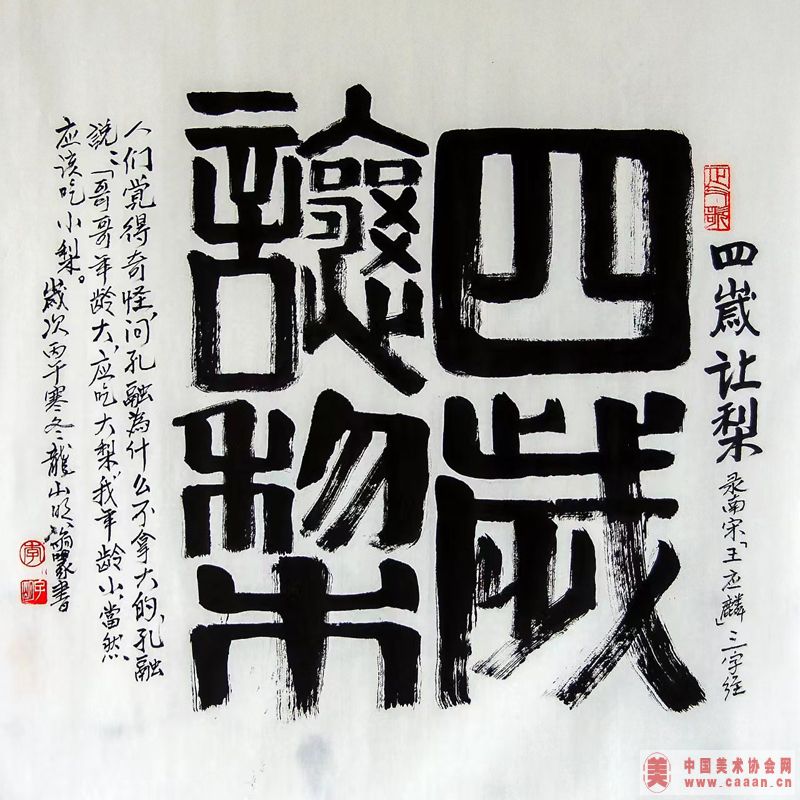 四歲
讓梨
四歲让梨
录南宋「王应麟」三字经
人们觉得奇怪,问孔融為什么不拿大的,孔融
說:「哥哥年龄大,应吃大梨,我年龄小,當然
应该吃小梨。歲次丙午寒冬龍山
書
中国美术协会网
www.caaan.cn